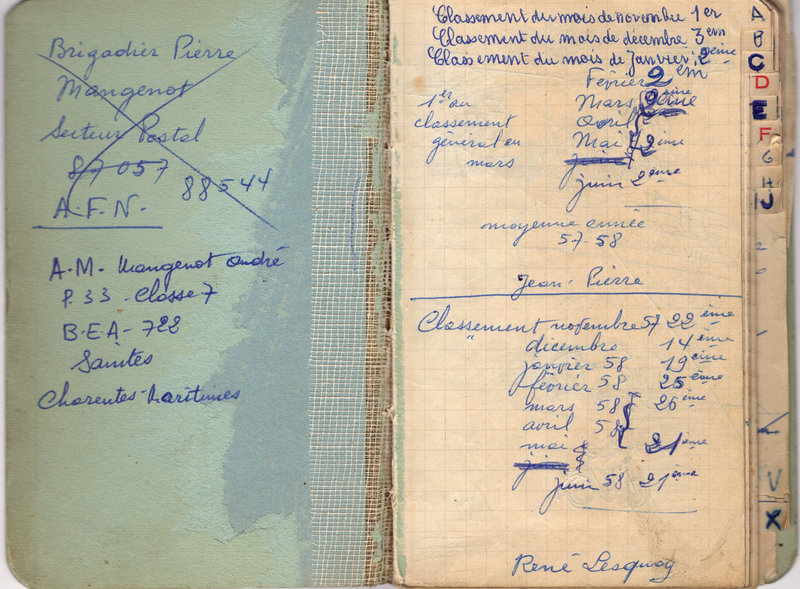 Brigadier Pierre
Mangenot
Secteur Postal
87 057
88544
A.F.N.
A.M. Mangenot André
P. 33 - Classe 7
B.E.A - 722
Saintes
Charentes-Maritimes
Classement du mois de novembre 1er
Classement du mois de décembre 3em
Classement du mois de janvier, 2eme
Février 2em
Mars 2ème
1er au
classement
général en
mars
avril
Mai 2ème
juin 2ème
moyenne année
57-58
Jean-Pierre
Classement novembre 57 22ème
décembre 14ème
janvier 58 19ème
février 58 25ème
mars 58 26ème
avril 58
mai 21ème
juin
juin 58 21ème
René Lesquoy
A
B
C
D
E
F
G
H
IJ
V
X